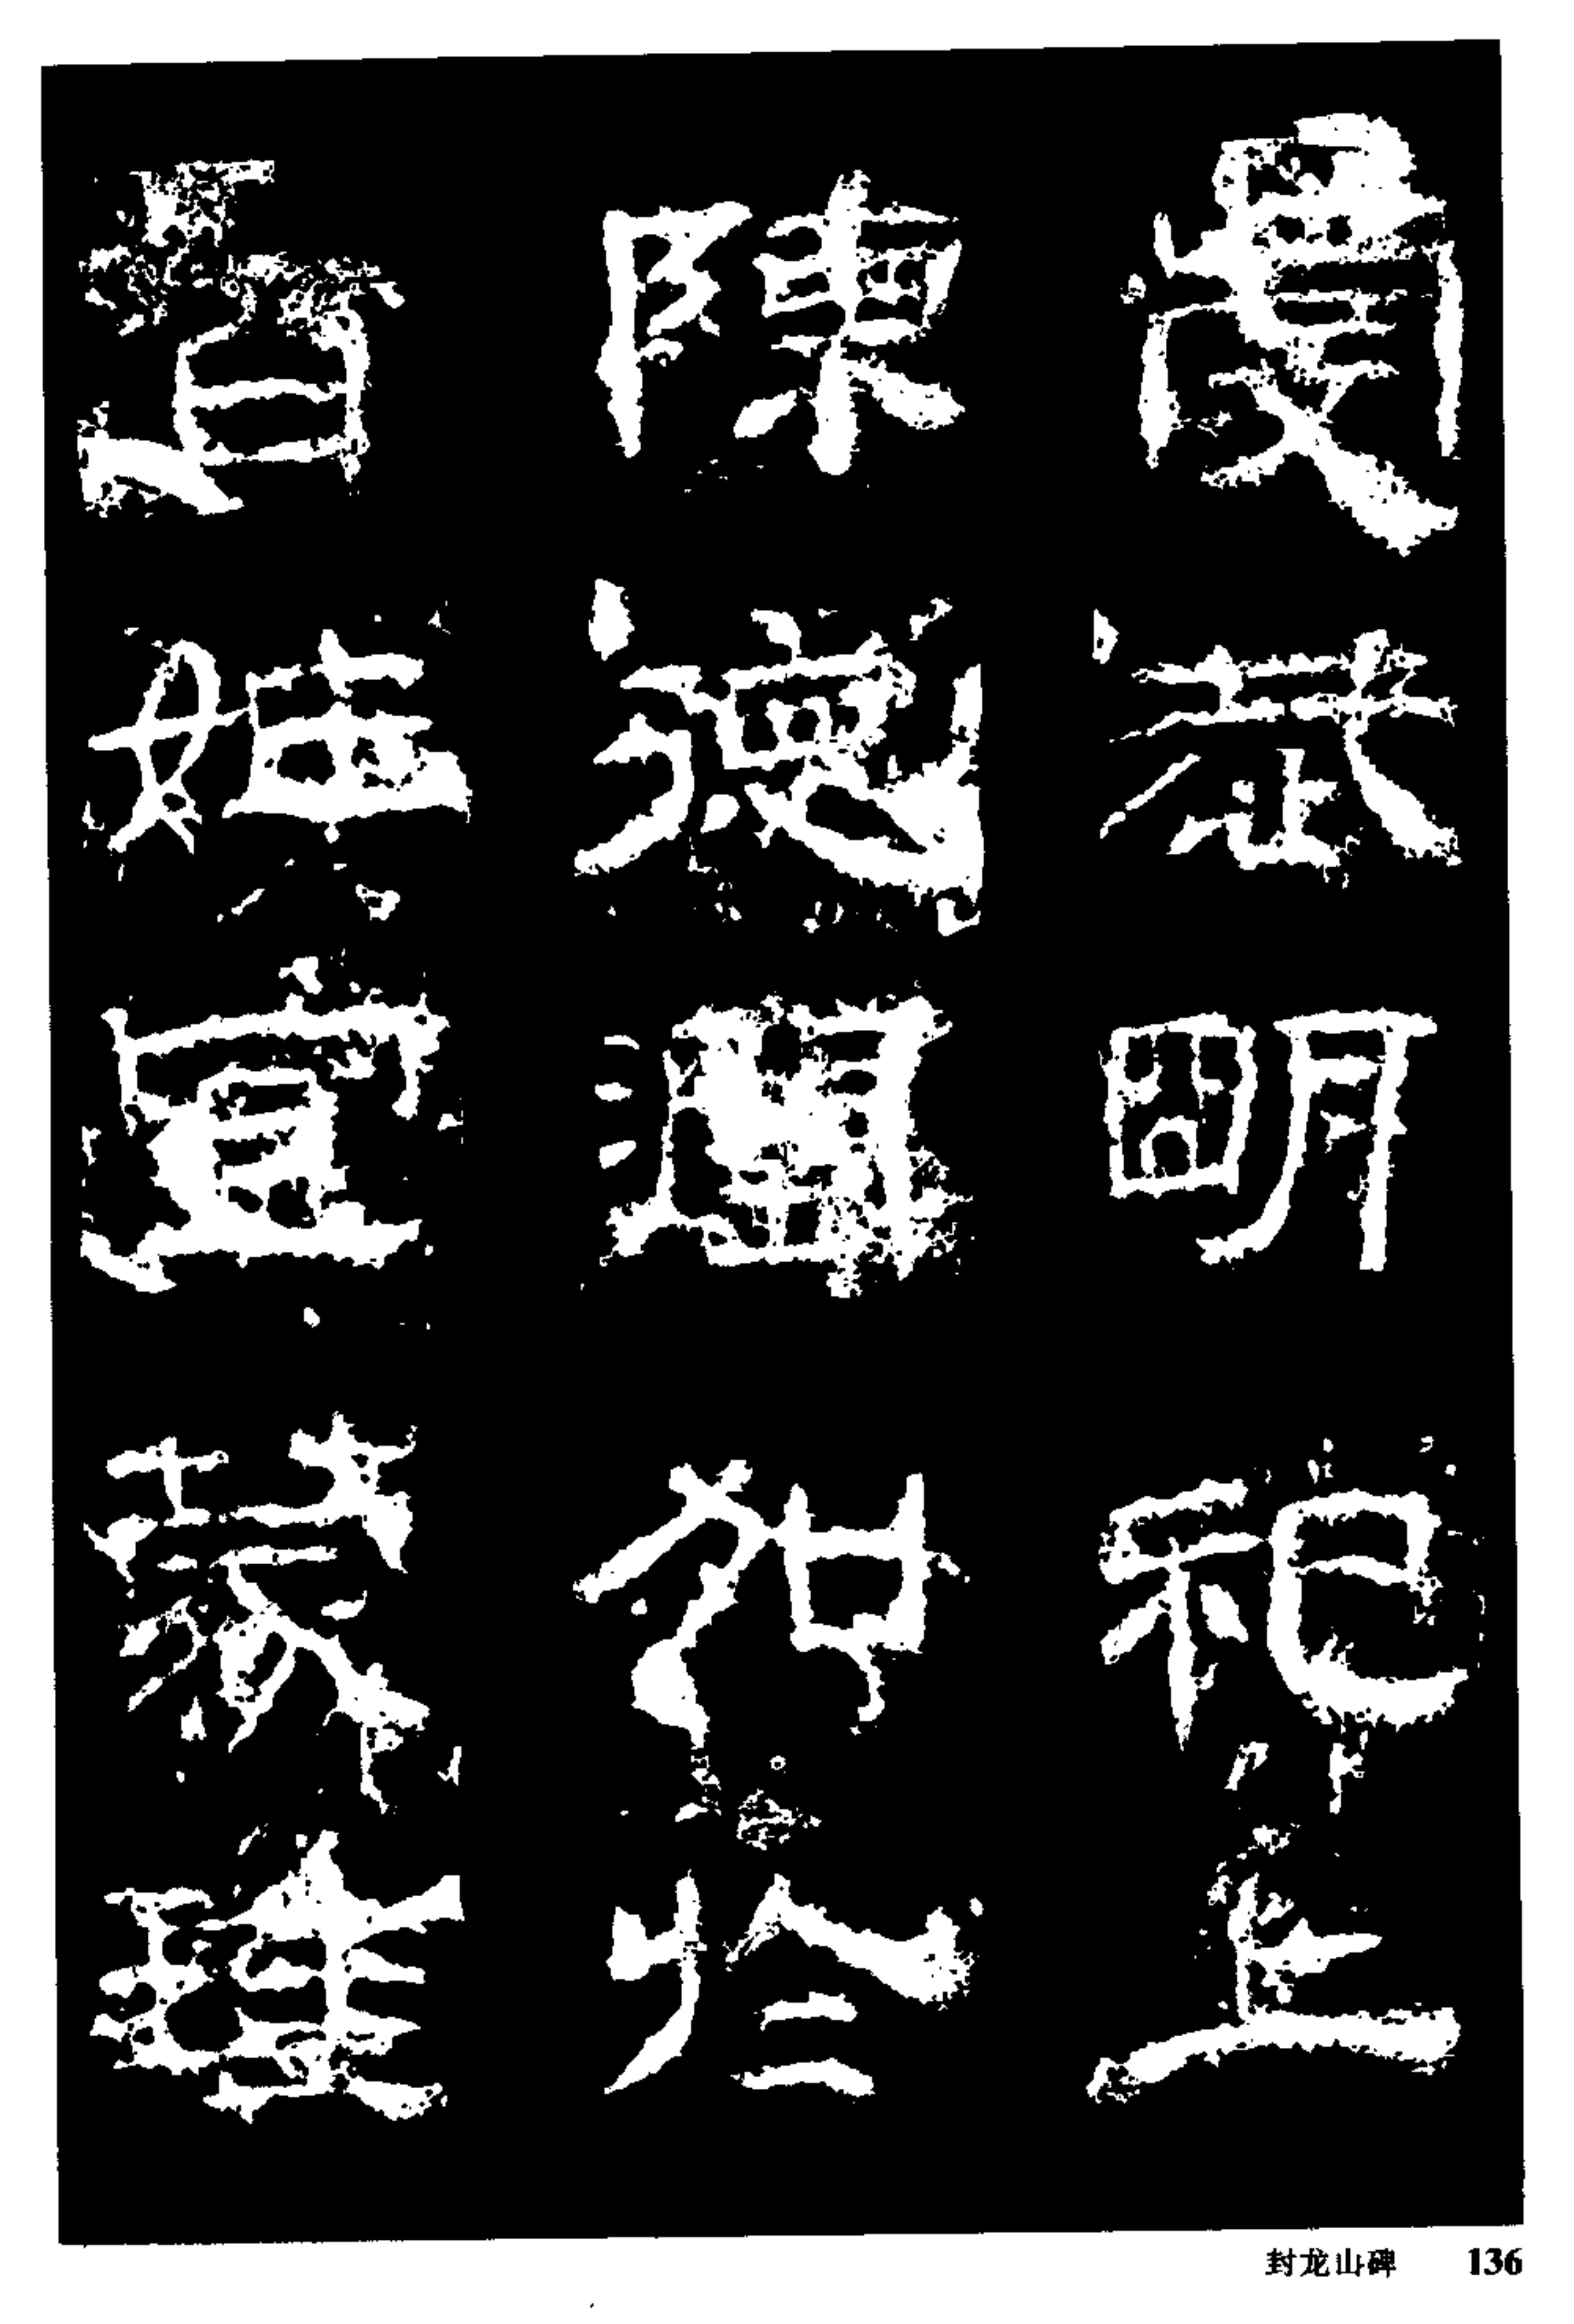 虔恭明祀上
陳德潤加於
百姓宜蒙珪
封龙山碑 136